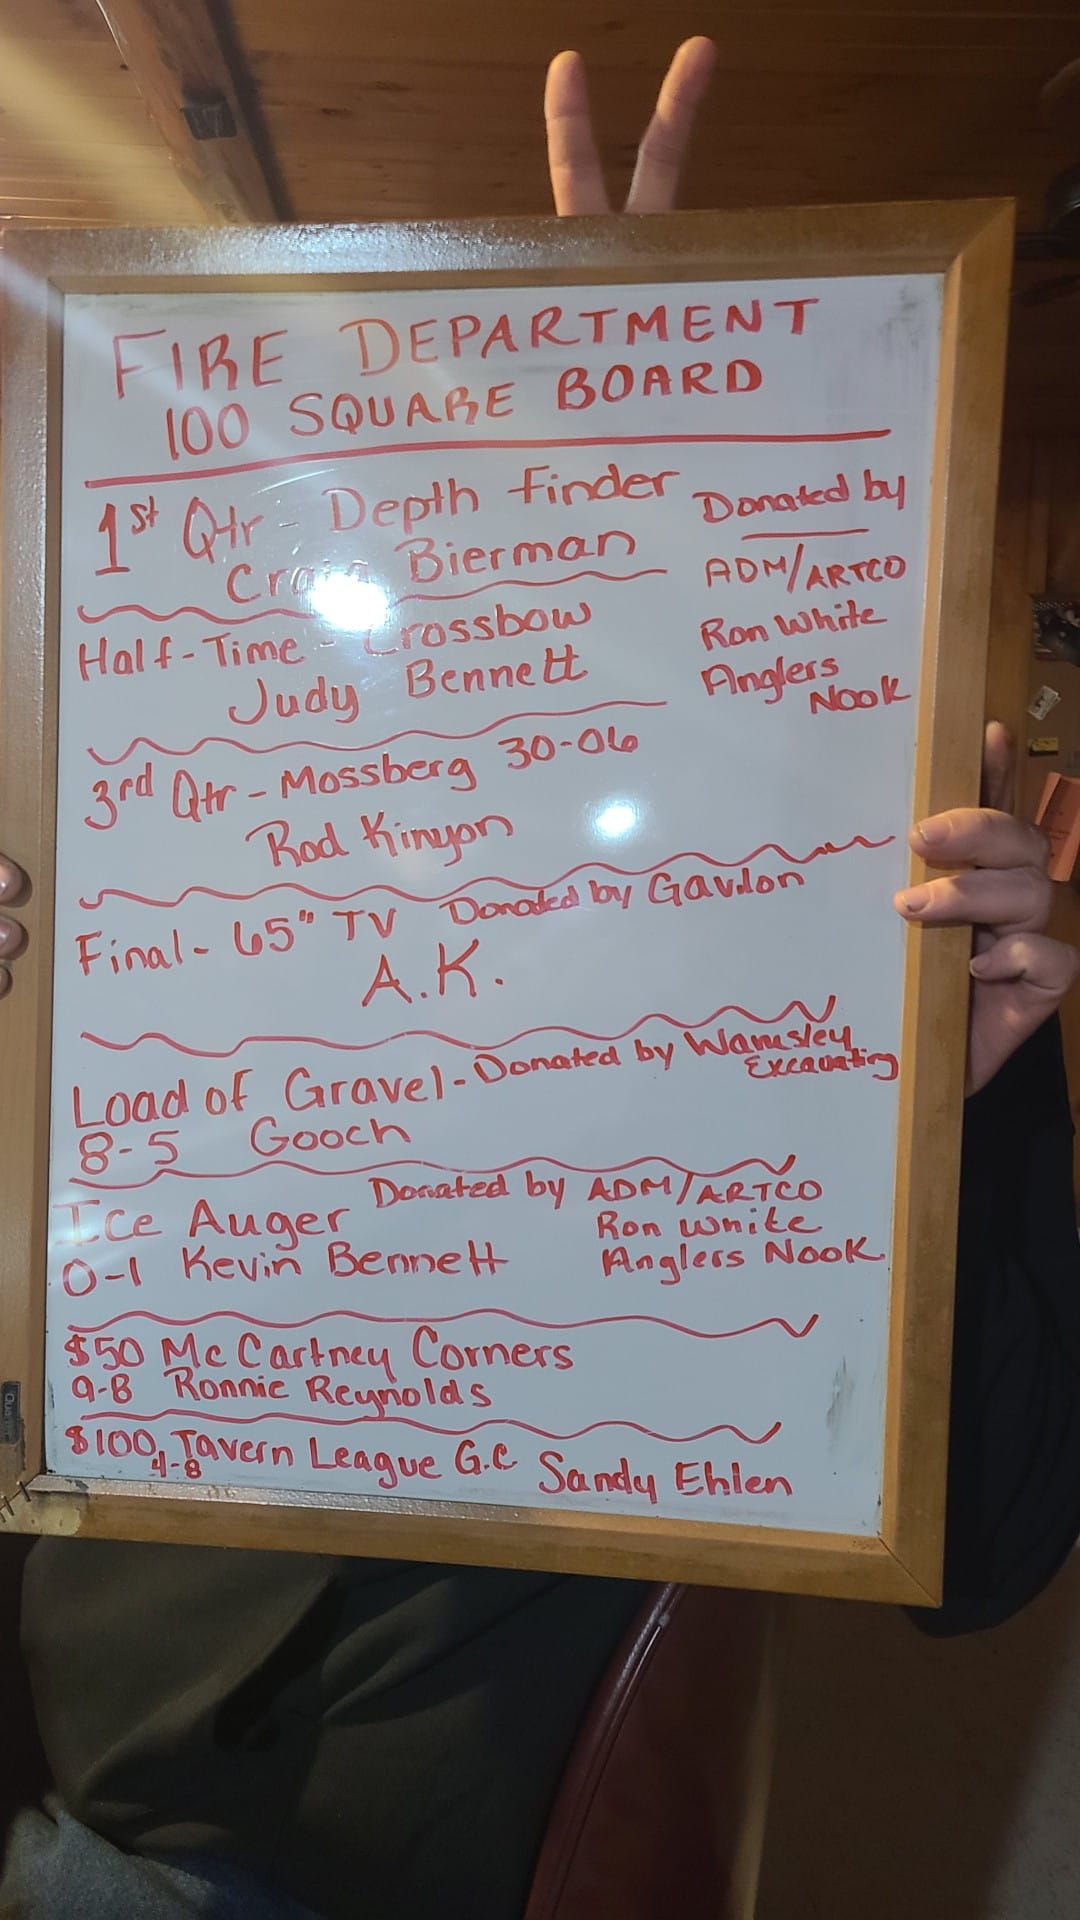 FIRE DEPARTMENT
100 SQUARE BOARD
1st Qtr - Depth finder
Craig Bierman
Donated by
ADM/ARTCO
Ron White
Anglers
Nook
Half-Time - Crossbow
Judy Bennett
3rd Qtr - Mossberg 30-06
Rod Kinyon
Final - 65" TV Donated by Gavilon
A.K.
Load of Gravel - Donated by Wamsley
Excavating
8-5 Gooch
Ice Auger Donated by ADM/ARTCO
Ron White
0-1 Kevin Bennett Anglers Nook
$50 McCartney Corners
9-8 Ronnie Reynolds
$100 Tavern League G.C Sandy Ehlen
4-8